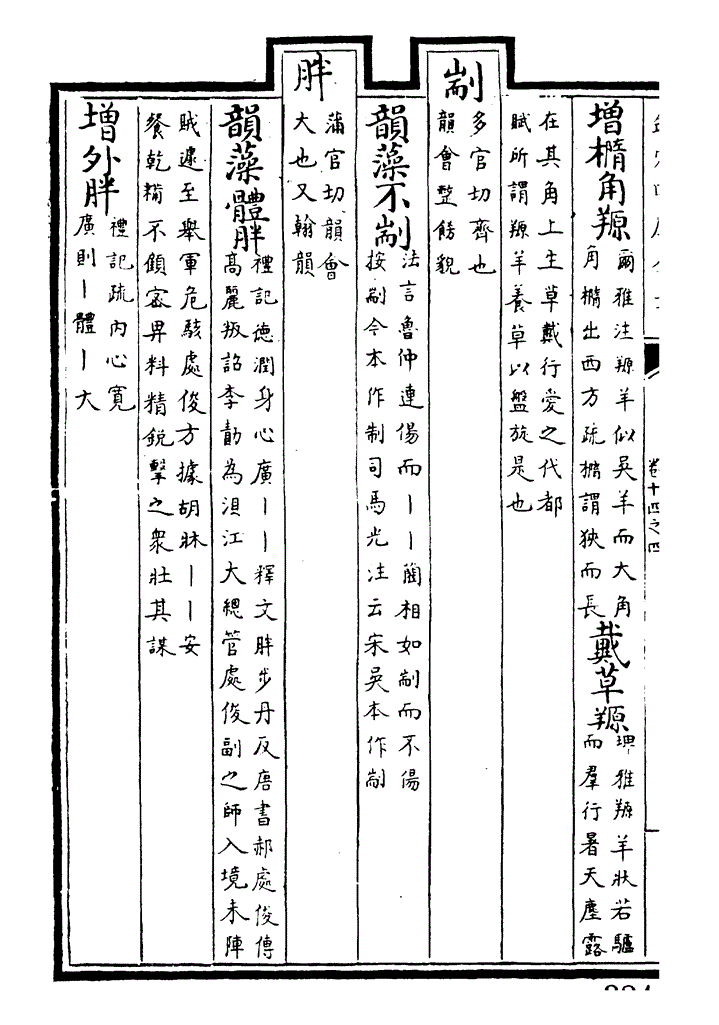 卷十四之四
增橢角羱
爾雅注羱羊似吳羊而大角
角橢出西方疏橢謂狹而長
戴草羱
埤雅羱羊狀若驢
而羣行暑天塵露
在其角上生草戴行愛之代都
賦所謂羱羊養草以盤旋是也
剬
多官切齊也
韻會整飭貌
韻藻不剬
法言魯仲連傷而丨丨藺相如剬而不傷
按剬今本作制司馬光注云宋吳本作剬
胖
蒲官切韻會
大也又翰韻
韻藻體胖
禮記德潤身心廣丨丨釋文胖步丹反唐書郝處俊傳
高麗叛詔李勣為浿江大總管處俊副之師入境未陣
賊遽至舉軍危駭處俊方據胡牀丨丨安
餐乾糒不顧密畀料精銳擊之衆壯其謀
增外胖
禮記疏內心寬
廣則丨體丨大